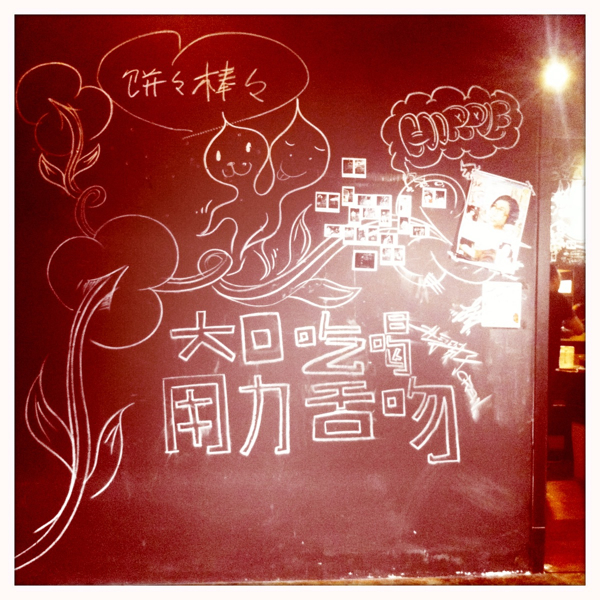 饼々棒々
HIPPIE
大口吃喝
用力舌吻